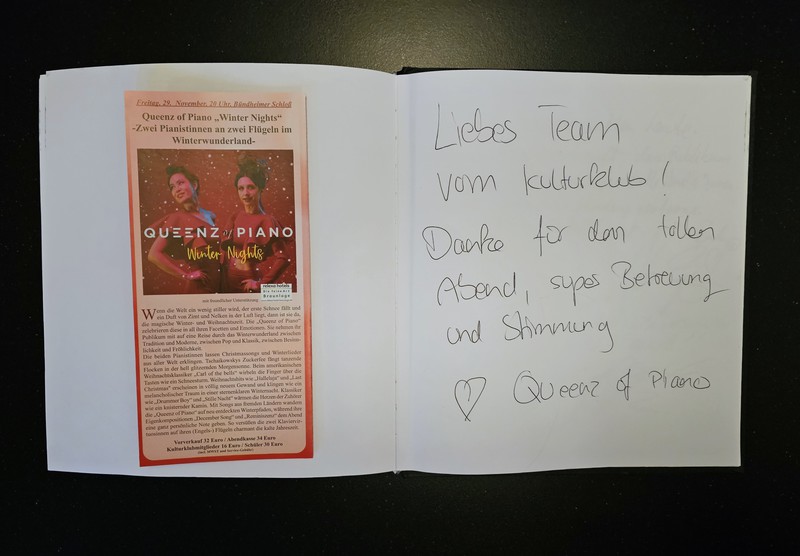 Freitag, 29. November, 20 Uhr, Bündheimer Schloß
Queenz of Piano „Winter Nights“
-Zwei Pianistinnen an zwei Flügeln im
Winterwunderland-
QUEENZ of PIANO
Winter Nights
relexa hotels
Braunlage
mit freundlicher Unterstützung
Wenn die Welt ein wenig stiller wird, der erste Schnee fällt und
ein Duft von Zimt und Nelken in der Luft liegt, dann ist sie da,
die magische Winter- und Weihnachtszeit. Die „Queenz of Piano“
zelebrieren diese in all ihren Facetten und Emotionen. Sie nehmen ihr
Publikum mit auf eine Reise durch das Winterwunderland zwischen
Tradition und Moderne, zwischen Pop und Klassik, zwischen Besinn-
lichkeit und Fröhlichkeit.
Die beiden Pianistinnen lassen Christmassongs und Winterlieder
aus aller Welt erklingen. Tschaikowskys Zuckerfee fängt tanzende
Flocken in der hell glitzernden Morgensonne. Beim amerikanischen
Weihnachtsklassiker „Carl of the bells“ wirbeln die Finger über die
Tasten wie ein Schneesturm. Weihnachtshits wie „Halleluja“ und „Last
Christmas“ erscheinen in völlig neuem Gewand und klingen wie ein
melancholischer Traum in einer sternenklaren Winternacht. Klassiker
wie „Drummer Boy“ und „Stille Nacht“ wärmen die Herzen der Zuhörer
wie ein knisternder Kamin. Mit Songs aus fremden Ländern wandern
die „Queenz of Piano“ auf neu entdeckten Winterpfaden, während ihre
Eigenkompositionen „December Song“ und dem Abend
eine ganz persönliche Note geben. So versüßen die zwei Klaviervir-
tuosinnen auf ihren (Engels-) Flügeln charmant die kalte Jahreszeit.
Vorverkauf 32 Euro / Abendkasse 34 Euro
Kulturklubmitglieder 16 Euro / Schüler 30 Euro
Liebes Team
vom Kulturklub!
Danke für den tollen
Abend, super Betreuung
und Stimmung
Queenz of Piano